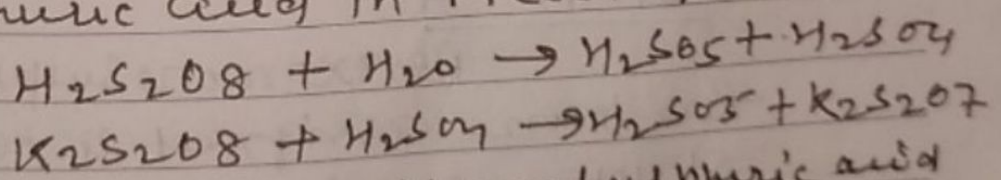 H2S2O8 + H2O → H2SO5 + H2SO4
K2S2O8 + H2SO4 → H2SO5 + K2S2O7
acid